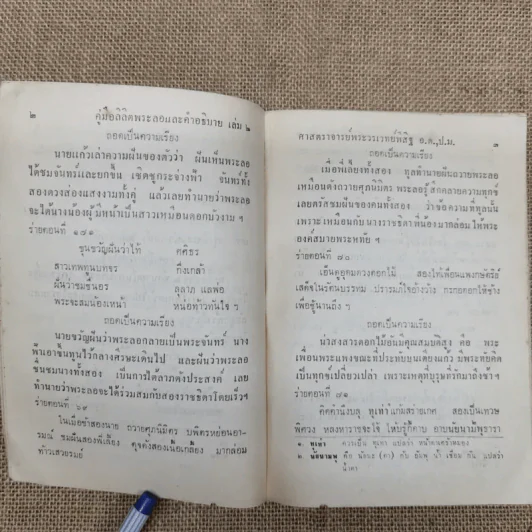 ๒ คู่มือลิลิตพระลอและคำอธิบาย เล่ม ๒
ถอดเป็นความเรียง
นายแก้วเล่าความฝันของตัวว่า ฝันเห็นพระลอ
ได้ชมจันทร์และยกขึ้น เชิดชูกระจ่างฟ้า จันทร์ทั้ง
สองดวงส่องแสงงามทั้งคู่ แล้วเลยทำนายว่าพระลอ
จะได้นางน้องผู้มีหน้าเป็นสาวเหมือนดอกม่วงงาม ฯ
ร่ายตอนที่
ขุนขวัญฝันว่าไท้ ศศิธร
สาวเทพทันบทจร กึ่งเกล้า
ฝันว่าชมขันอร ลุลาภ แลพ่อ
พระจะสมน้องเหน้า หน่อท้าวทันใจ ฯ
ถอดเป็นความเรียง
นายขวัญฝันว่าพระลอกลายเป็นพระจันทร์ นาง
ฟ้าเอาขึ้นทูนไว้กลางศีรษะเดินไป และฝันว่าพระลอ
ขึ้นชมนางทั้งสอง เป็นการได้ลาภดังประสงค์ เลย
ทำนายว่าพระลอจะได้ร่วมสมกับสองราชธิดาโดยเร็วฯ
ร่ายตอนที่ ๖๙
ในเมื่อข้าสองนาย ถวายศุภนิมิตร บพิตรหย่อนอา-
รมณ์ ชมฝันสองพี่เลี้ยง ดุจดังสองเนื้อเกลี้ยง มากล่อม
ท้าวเสวยรมย์
ศาสตราจารย์พระวรเวทย์พิสิฐ อ.ด.,ป.ม. ๓
ถอดเป็นความเรียง
เมื่อพี่เลี้ยงทั้งสอง ทูลทำนายฝันถวายพระลอ
เหมือนดังถวายศุภนิมิตร พระลอรู้สึกคลายความทุกข์
เลยตรัสชมฝันของคนทั้งสอง ว่าข้อความที่ทูลนั้น
เพราะเหมือนกับนางราชธิดาพี่น้องมากล่อมให้พระ
องค์สบายพระหทัย ฯ
ร่ายตอนที่ ๗๐
เอ็นดูอุดมดวงดอกไม้ สองไท้เพื่อนแพงกษัตริย์
เสด็จในรัตนบรรทม ปรารมภ์ใจอ้างว้าง
เพื่อผู้นานถึง ฯ
ถอดเป็นความเรียง
น่าสงสารดอกไม้อันมีคุณสมบัติสูง คือ พระ
เพื่อนพระแพงขณะที่ประทับบนเตียงแก้ว มีพระหทัยคิด
เป็นทุกข์เปลี่ยวเปล่า เพราะเหตุที่บุรุษที่รักมาถึงช้า ฯ
ร่ายตอนที่ ๗๑
คิดคำนึงบลุ สองเป็นเทวษ
พิศวง หลงหาราชจะไจ้
๑. คือ
๒. นัยนามพุ คือ นัยน (ตา) กับ อัมพุ น้ำ เชื่อม กัน แปลว่า
น้ำตา